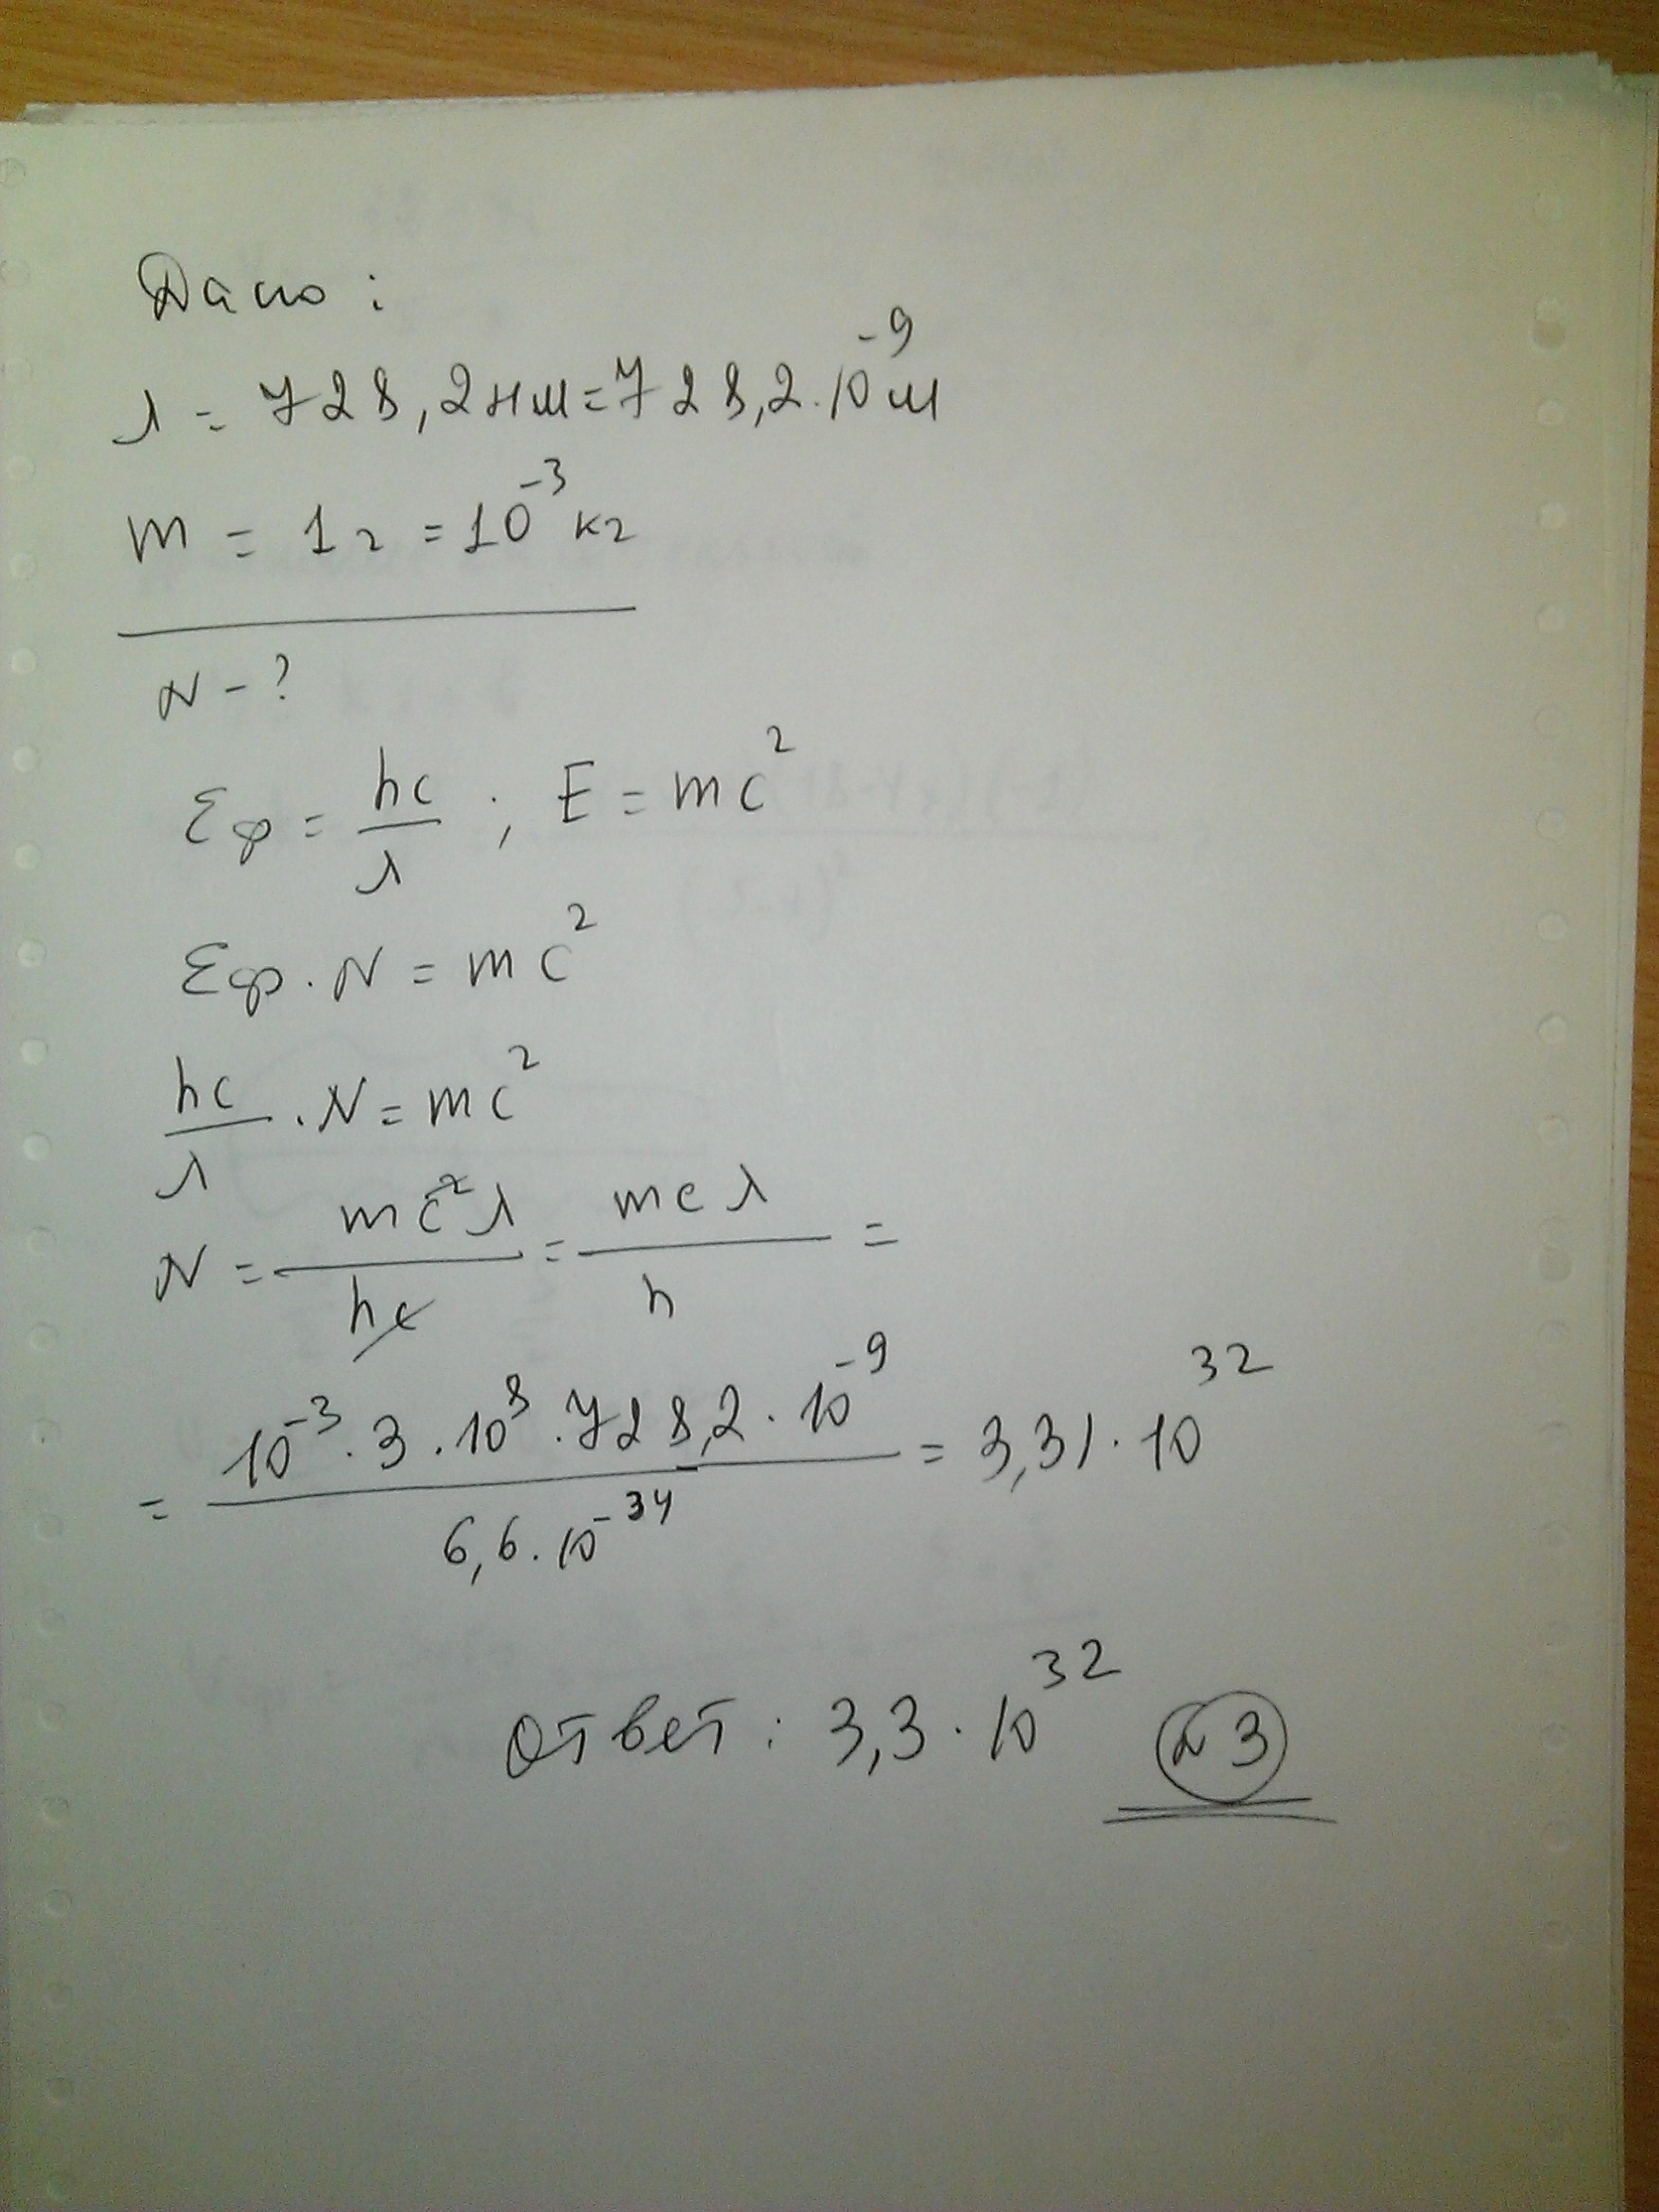 Дано:
λ = 728,2 нм = 728,2 · 10⁻⁹ м
m = 1 г = 10⁻³ кг
N - ?
Eф = hc/λ ; E = mc²
Eф · N = mc²
hc/λ · N = mc²
N = mc²λ/hc = mcλ/h =
= 10⁻³ · 3 · 10⁸ · 728,2 · 10⁻⁹ / 6,6 · 10⁻³⁴ = 3,31 · 10³²
Ответ: 3,3 · 10³² N 3